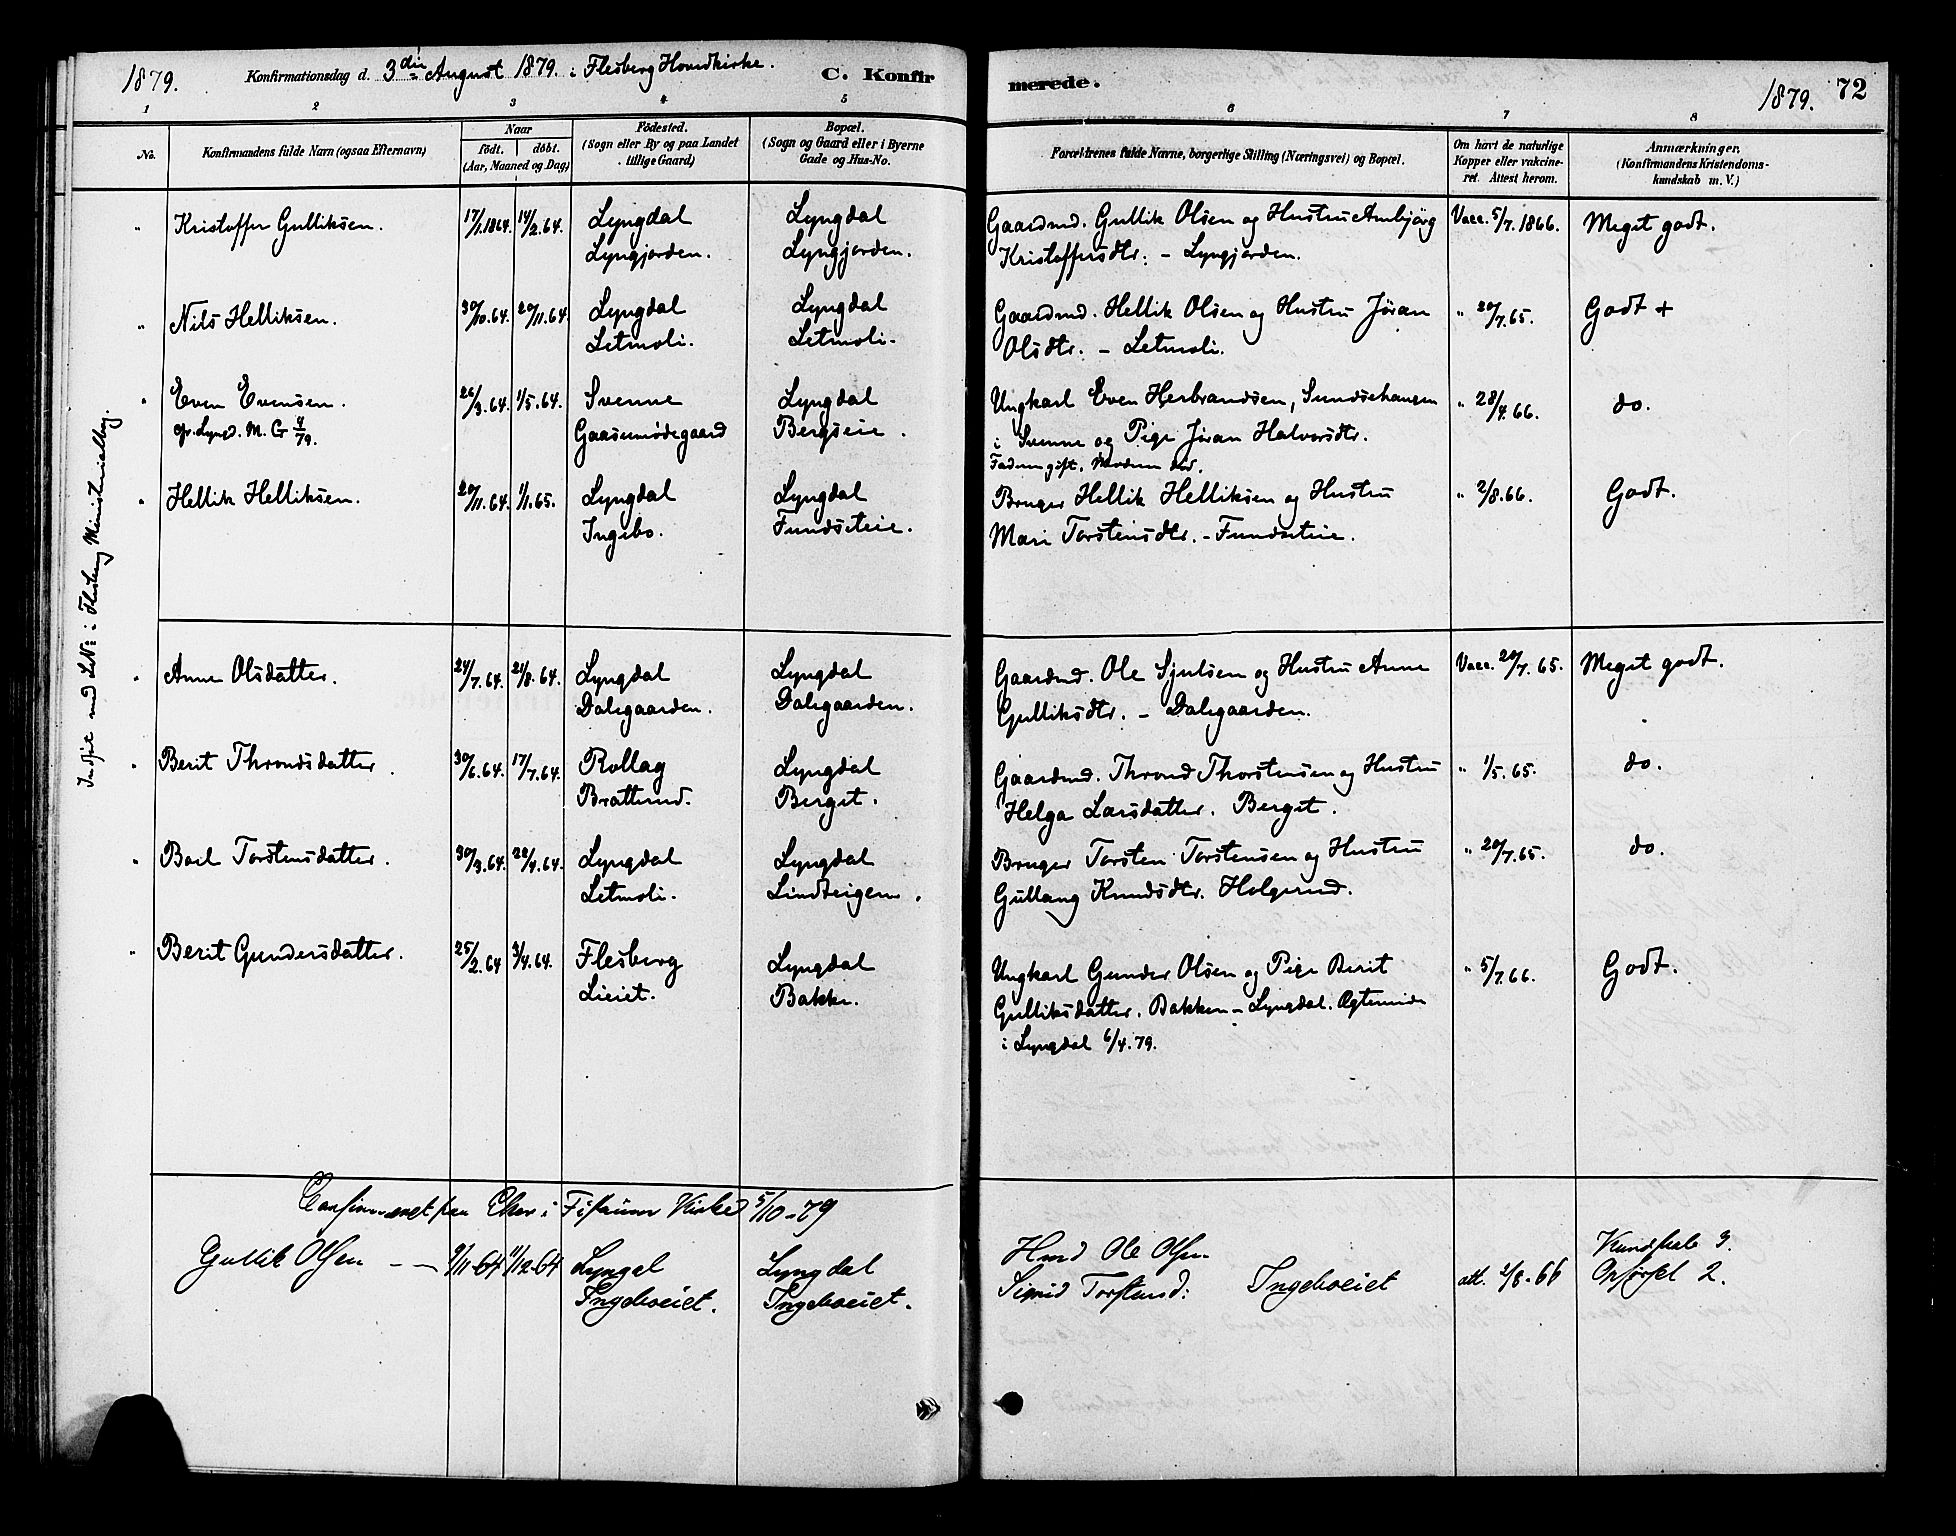 1879. Konfirmationsdag d. 3die August 1879. i Flesberg Hovedkirke. C. Konfirmerede. 1879. 72
1 2 3 4 5 6 7 8
No. Konfirmandens fulde Navn (ogsaa Efternavn) Naar født. døbt. (Aar, Maaned og Dag) Fødested. (Sogn eller By og paa Landet tillige Gaard) Bopæl. (Sogn og Gaard eller i Byerne Gade og Hus-No. Forældrenes fulde Navne, borgerlige Stilling (Næringsvei) og Bopæl. Om havt de naturlige Kopper eller vakcineret. Attest herom. Anmærkninger. (Konfirmandens Kristendomskundskab m. V.)
" Kristoffer Gulliksen. 17/1.1864. 14/2.64. Lyngdal Lyngdal Gaardmd. Gullik Olsen og Hustru Anbjørg Vacc. 5/7.1866. Meget godt.
Lyngjorden. Lyngjorden. Kristoffersdtr. - Lyngjorden.
" Nils Helliksen. 30/10.64. 20/11.64. Lyngdal Lyngdal Gaardmd. Hellik Olsen og Hustru Jøran " 20/7.65. Godt +
Letmoli. Letmoli. Olsdtr. - Letmoli.
" Even Evensen. 26/3.64. 1/5.64. Svenne Lyngdal Ungkarl Even Herbrandsen, Sundsehaugen " 28/4.66. do.
op. Lyngd. M. G 4/79. Gaasemødegaard Bergseie. i Svenne og Pige Jøran Halvorsdtr.
Faderen gift. Moderen død.
" Hellik Helliksen. 20/11.64. 1/1.65. Lyngdal Lyngdal Bruger Hellik Helliksen og Hustru " 2/8.66. Godt.
Ingebo. Fundseteie. Mari Torstensdtr. - Fundseteie.
" Anne Olsdatter. 24/7.64. 21/8.64. Lyngdal Lyngdal Gaardmd. Ole Sjulsen og Hustru Anne Vacc. 20/7.65. Meget godt.
Dalsgaarden. Dalsgaarden. Gulliksdtr. - Dalsgaarden.
" Berit Throndsdatter. 30/6.64. 17/7.64. Rollag Lyngdal Gaardmd. Thrond Thorstensen og Hustru " 1/5.65. do.
Bratterud. Berget. Helga Larsdatter. Berget.
" Boel Torstensdatter. 30/3.64. 24/4.64. Lyngdal Lyngdal Bruger Torsten Torstensen og Hustru " 20/7.65. do.
Letmoli. Lindteigen. Gullaug Knudsdtr. Holgerud.
" Berit Gundersdatter. 25/2.64 3/4.64. Flesberg Lyngdal Ungkarl Gunder Olsen og Pige Berit " 5/7.66. Godt.
Lieiet. Bakke. Gulliksdatter. Bakken - Lyngdal. Ægteviede
i Lyngdal 6/4.79.
Indført med LNo: i Flesberg Ministerialbog.
Confirmeret paa Eker i Fiskum Kirke 5/10-79
Gullik Olsen - - 9/11-64 11/12-64 Lyngal Lyngdal Hmd Ole Olsen Kundskab 3.
Ingeboeiet. Ingeboeiet. Sigrid Torstensd: Ingeboeiet att. 2/8-66 Opførsel 2.